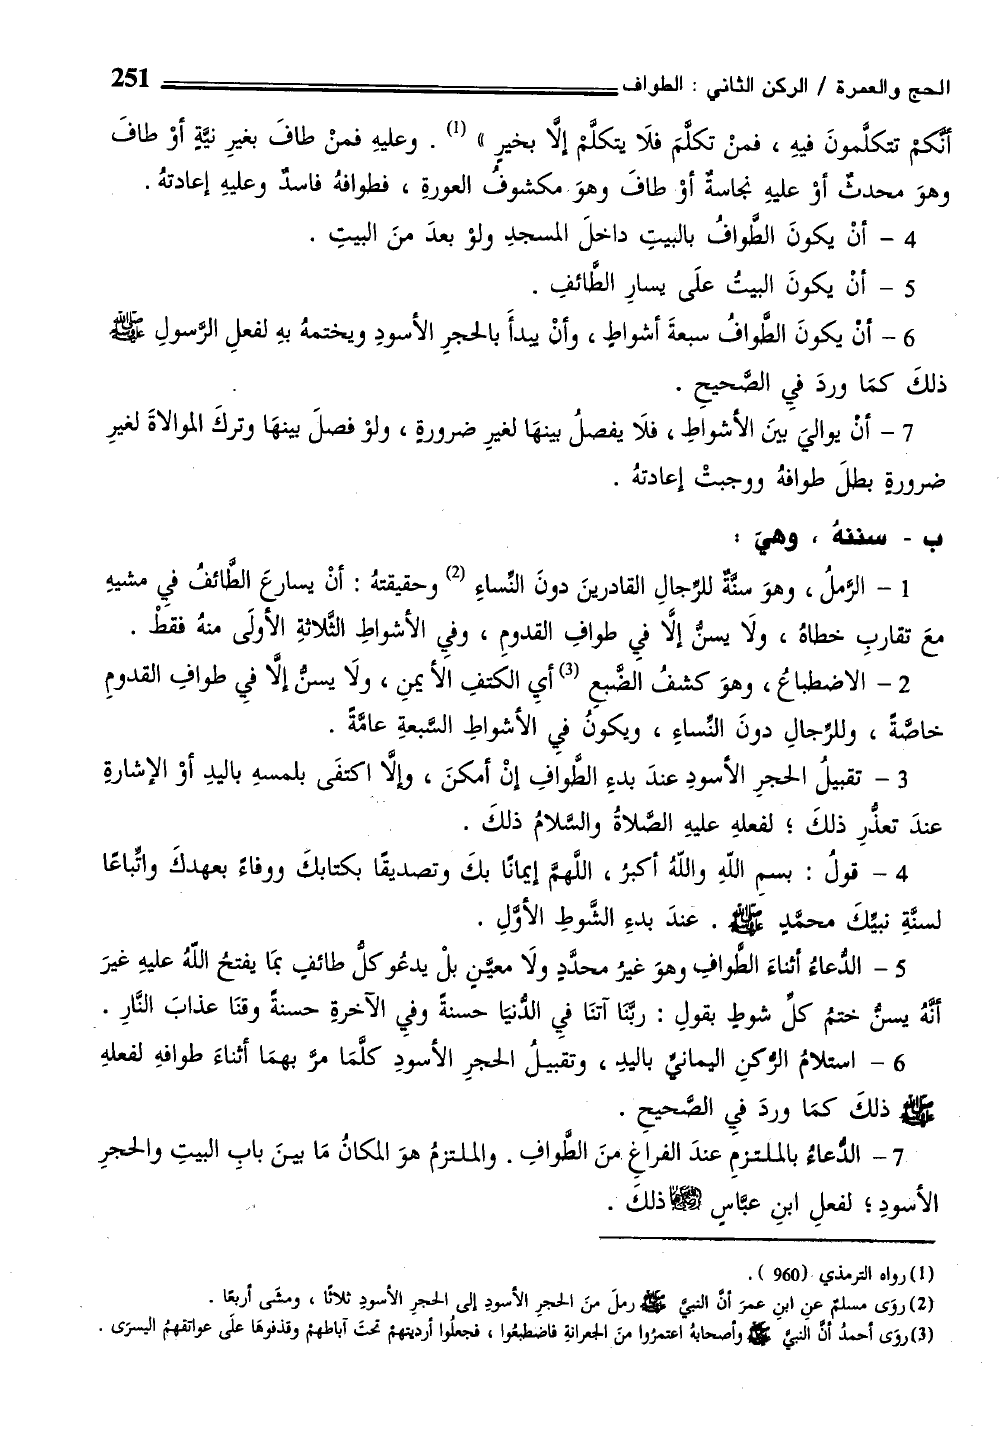 الحج والعمرة / الركن الثاني : الطواف 251
أنَّكمْ تتكلَّمونَ فيهِ ، فمنْ تكلَّمَ فلَا يتكلَّمْ إلَّا بخيرٍ » (1) . وعليهِ فمنْ طافَ بغيرِ نيَّةٍ أوْ طافَ
وهوَ محدثٌ أوْ عليهِ نجاسةٌ أوْ طافَ وهوَ مكشوفُ العورةِ ، فطوافهُ فاسدٌ وعليهِ إعادتهُ .
4 – أنْ يكونَ الطَّوافُ بالبيتِ داخلَ المسجدِ ولوْ بعدَ منَ البيتِ .
5 – أنْ يكونَ البيتُ علَى يسارِ الطَّائفِ .
6 – أنْ يكونَ الطَّوافُ سبعةَ أشواطٍ ، وأنْ يبدأَ بالحجرِ الأسودِ ويختمهُ بهِ لفعلِ الرَّسولِ ﷺ
ذلكَ كمَا وردَ فِي الصَّحيحِ .
7 – أنْ يواليَ بينَ الأشواطِ ، فلَا يفصلُ بينهَا لغيرِ ضرورةٍ ، ولوْ فصلَ بينهَا وتركَ الموالاةَ لغيرِ
ضرورةٍ بطلَ طوافهُ ووجبتْ إعادتهُ .
ب - سننهُ ، وهيَ :
1 – الرَّملُ ، وهوَ سنَّةٌ للرِّجالِ القادرينَ دونَ النِّساءِ (2) وحقيقتهُ : أنْ يسارعَ الطَّائفُ فِي مشيهِ
معَ تقاربِ خطاهُ ، ولَا يسنُّ إلَّا فِي طوافِ القدومِ ، وفِي الأشواطِ الثَّلاثةِ الأولَى منهُ فقطْ .
2 – الاضطباعُ ، وهوَ كشفُ الضَّبعِ (3) أيِ الكتفِ الأيمنِ ، ولَا يسنُّ إلَّا فِي طوافِ القدومِ
خاصَّةً ، وللرِّجالِ دونَ النِّساءِ ، ويكونُ فِي الأشواطِ السَّبعةِ عامَّةً .
3 – تقبيلُ الحجرِ الأسودِ عندَ بدءِ الطَّوافِ إنْ أمكنَ ، وإلَّا اكتفَى بلمسهِ باليدِ أوْ الإشارةِ
عندَ تعذُّرِ ذلكَ ؛ لفعلهِ عليهِ الصَّلاةُ والسَّلامُ ذلكَ .
4 – قولُ : بسمِ اللّهِ واللّهُ أكبرُ ، اللّهمَّ إيمانًا بكَ وتصديقًا بكتابكَ ووفاءً بعهدكَ واتِّباعًا
لسنَّةِ نبيِّكَ محمَّدٍ ﷺ . عندَ بدءِ الشَّوطِ الأوَّلِ .
5 – الدُّعاءُ أثناءَ الطَّوافِ وهوَ غيرُ محدَّدٍ ولَا معيَّنٍ بلْ يدعُو كلُّ طائفٍ بمَا يفتحُ اللّهُ عليهِ غيرَ
أنَّهُ يسنُّ ختمُ كلِّ شوطٍ بقولِ : ربَّنَا آتنَا فِي الدُّنيَا حسنةً وفِي الآخرةِ حسنةً وقنَا عذابَ النَّارِ .
6 – استلامُ الرُّكنِ اليمانيِّ باليدِ ، وتقبيلُ الحجرِ الأسودِ كلَّمَا مرَّ بهمَا أثناءَ طوافهِ لفعلهِ
ﷺ ذلكَ كمَا وردَ فِي الصَّحيحِ .
7 – الدُّعاءُ بالملتزمِ عندَ الفراغِ منَ الطَّوافِ . والملتزمُ هوَ المكانُ مَا بينَ بابِ البيتِ والحجرِ
الأسودِ ؛ لفعلِ ابنِ عبَّاسٍ ذلكَ .
(1) رواه الترمذي (960 ) .
(2) روَى مسلمٌ عنِ ابنِ عمرَ أنَّ النبيَّ ﷺ رملَ منَ الحجرِ الأسودِ إلى الحجرِ الأسودِ ثلاثًا ، ومشَى أربعًا .
(3) روَى أحمدُ أنَّ النبيَّ ﷺ وأصحابهُ اعتمرُوا منَ الجعرانةِ فاضطبعُوا ، فجعلُوا أرديتهمْ تحتَ آباطهمْ وقذفوهَا علَى عواتقهمُ اليسرَى .